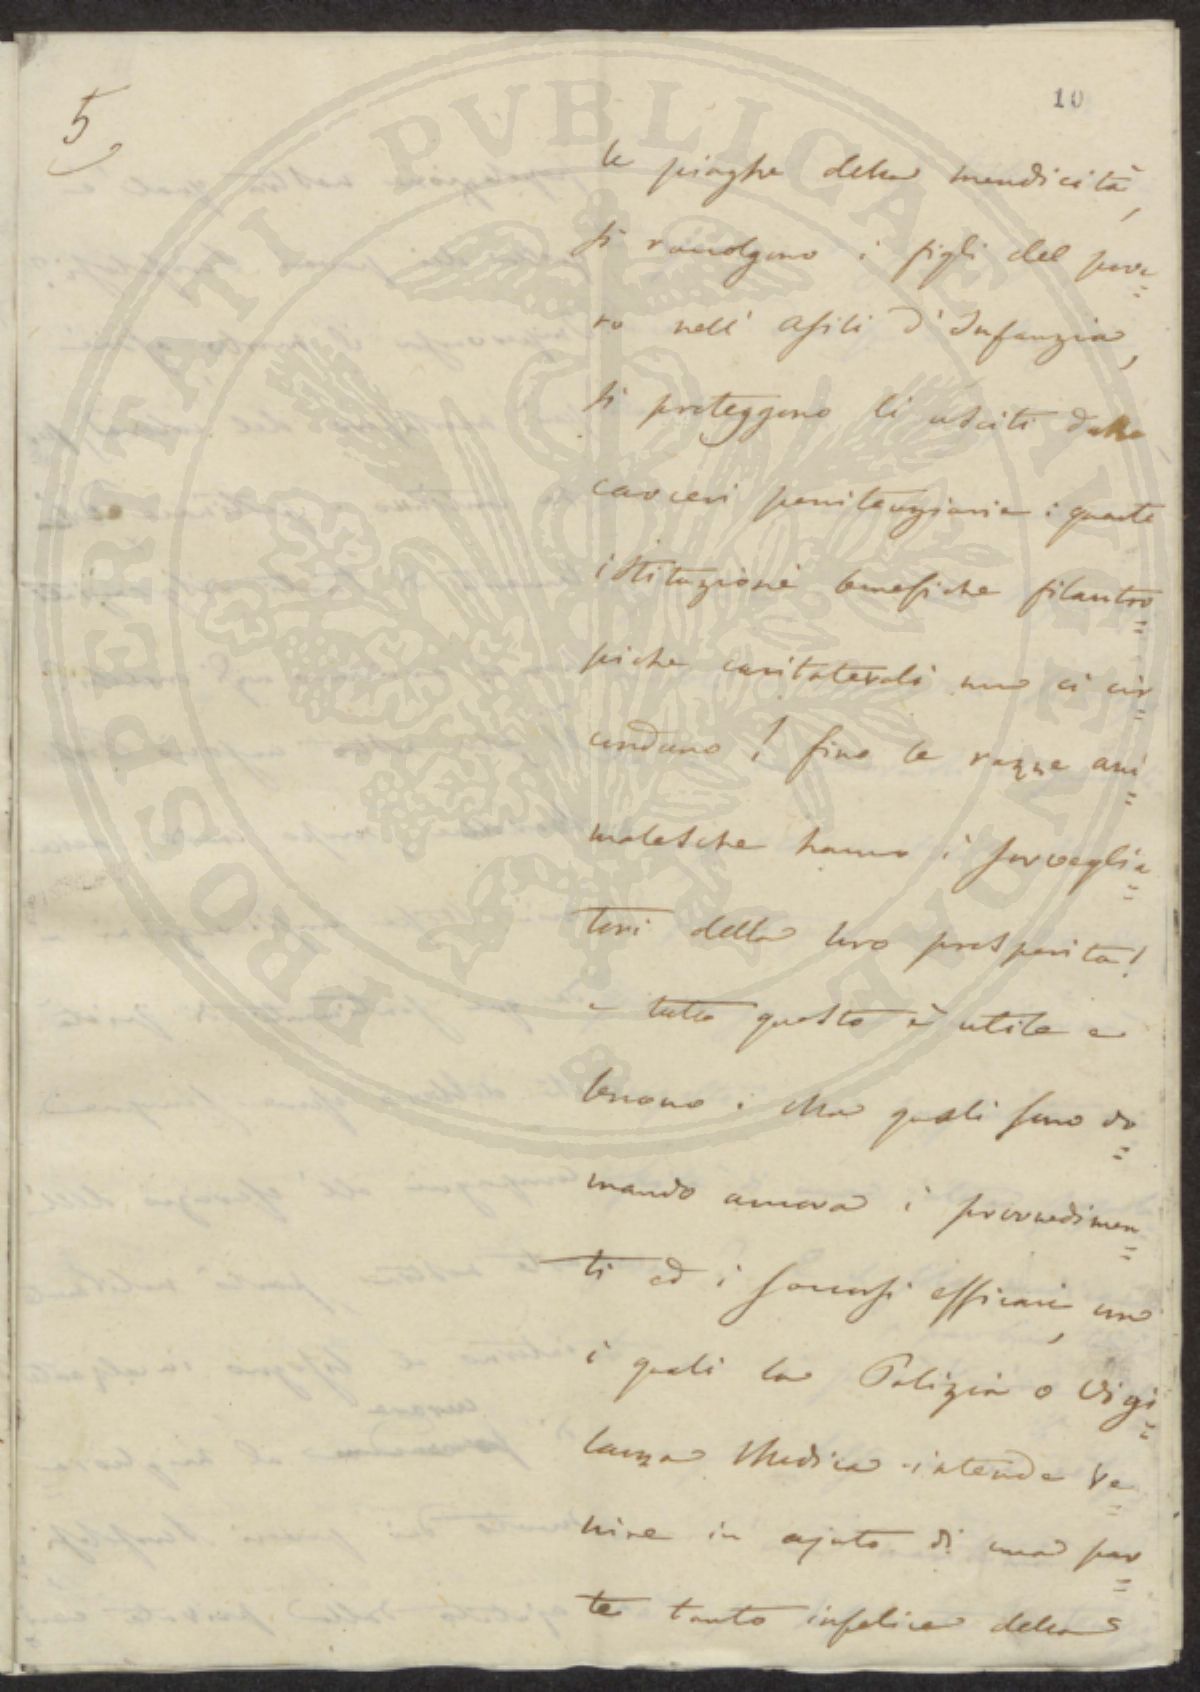 10
5
le piaghe della mendicità,
si raccolgono i figli del pove=
ro nell' asili d'Infanzia,
si proteggono li usciti dalle
carceri penitenziarie: quante
istituzioni benefiche filantro=
piche caritatevoli non ci cir=
condano! fino le razze ani=
malesche hanno i sorveglia=
tori della loro prosperità!
e tutto questo è utile e
buono. Ma quali sono do=
mando ancora i provvedimen=
ti ed i soccorsi efficaci, con
i quali la Polizia o Vigi=
lanza Medica intende ve=
nire in ajuto di una par=
te tanto infelice della
PROSPERITATI PVBLICAE AVGENDAE